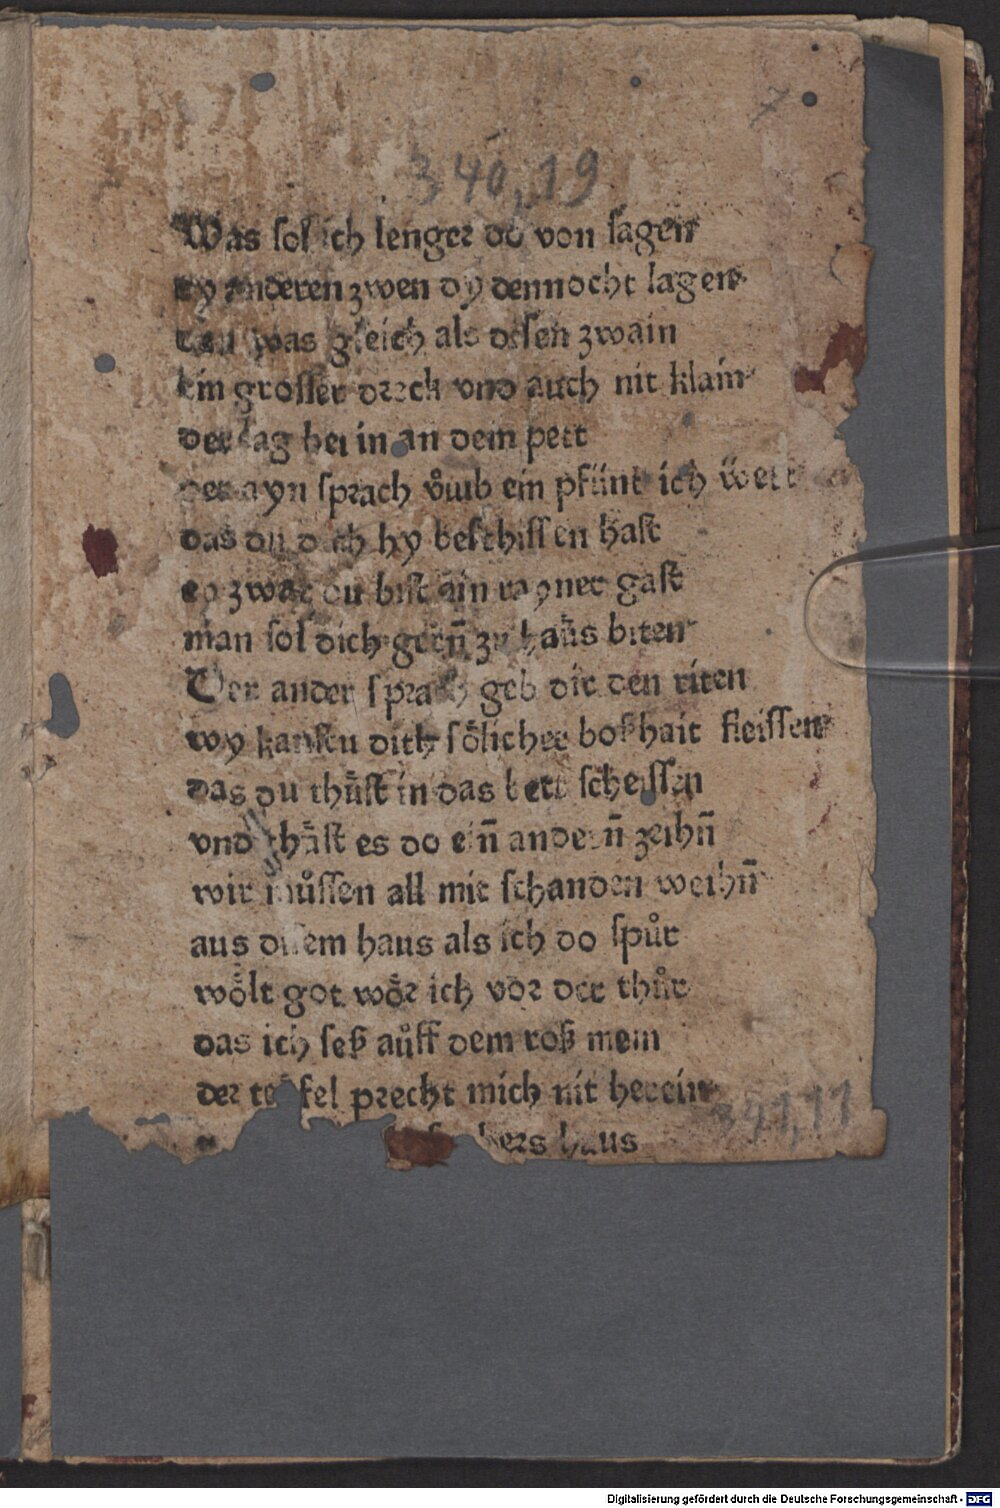 7
340,19
Was sol ich lenger do von sagen
dy anderen zwen dy dennocht lagen
was gleich als disen zwain
Ein grosser dreck vnd auch nit klain
der lag bei in an dem pett
der ayn sprach ein pfunt ich wett
das du dich hy beschissen hast
zwar du bist ain gast
man sol dich gern̄ zu haůs biten
Der ander sprach geb dir den riten
wy kanstu dich sölicher boßhait fleissen
das du thůst in das bett scheissen
vnd es do ein̄ andern̄ zeihn̄
wir můssen all mit schanden weihn̄
aus disem haus als ich do spůr
wölt got wör ich vor der thůr
das ich seß aůff dem roß mein
der teufel precht mich nit herein
haus
341,11
Digitalisierung gefördert durch die Deutsche Forschungsgemeinschaft - DFG